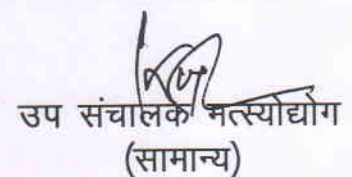 उप संचालक मत्स्योद्योग
(सामान्य)